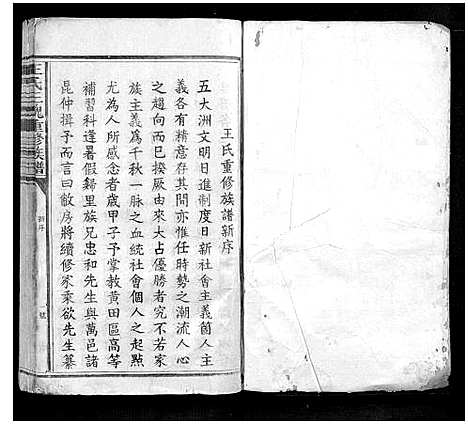 王氏重修族譜新序
五大洲文明日進制度日新社會主義箇人主
義各有精意存其間亦惟任時勢之潮流人心
之趨向而已揆厥由來大占優勝者究不若家
族主義為千秋一脉之血統社會個人之起㸃
尤為人所感念者歲甲子予掌教黃田區高等
補習科逢暑假歸里族兄忠和先生與萬邑諸
昆仲揖予而言曰敝房將續修家乘欲先生纂
王氏三槐重修族譜
新序